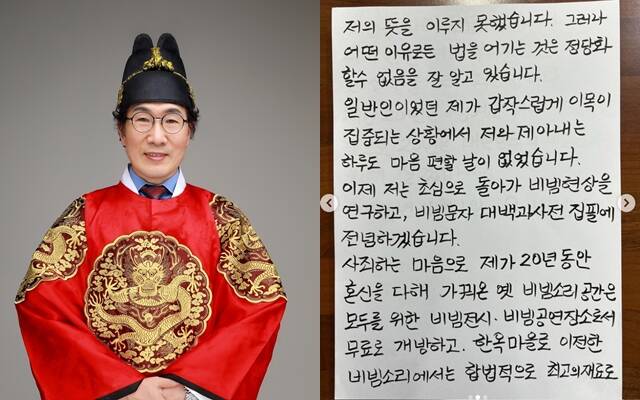 저의 뜻을 이루지 못했습니다. 그러나
어떤 이유로든 법을 어기는 것은 정당화
할수 없음을 잘 알고 있습니다.
일반인이었던 제가 갑작스럽게 이목이
집중되는 상황에서 저와 제아내는
하루도 마음 편할 날이 없었습니다.
이제 저는 초심으로 돌아가 비빔현상을
연구하고, 비빔문자 대백과사전 집필에
전념하겠습니다.
사죄하는 마음으로 제가 20년동안
혼신을 다해 가꿔온 옛 비빔소리공간은
모두를 위한 비빔전시·비빔공연장소로서
무료로 개방하고, 한옥마을로 이전한
비빔소리에서는 합법적으로 최고의재료로